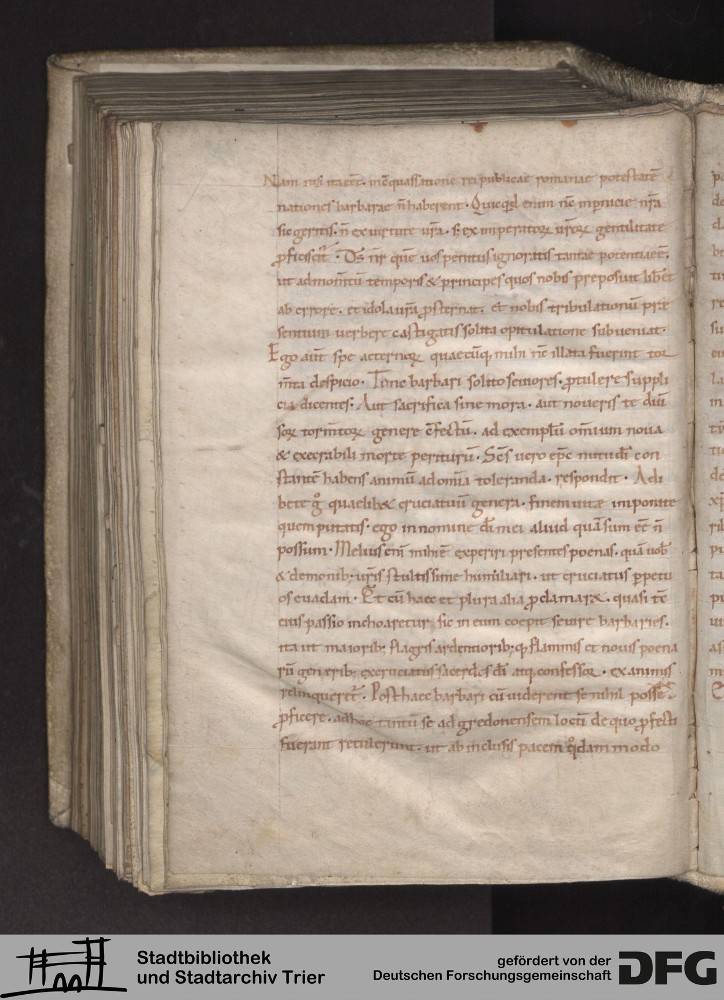 Nam nisi ita eēt. in eq̄uassatione rei publicae romanae potestatē
nationes barbarae n̄ haberent. Quicqͥd enim in p̄nicie nr̄a
sic geritis. n̄ ex uirtute ur̄a. s; ex imperatoꝝ ur̄oꝝ gentilitate
ꝓficiscit᷒. Ds̄ nr̄ quē uos penitus ignoratis tantae potentiae ē.
ut ad momtū temporis & principes quos nobis preposuit liber&
ab errore. et idola ur̄a ꝓsternat. et nobis tribulationū prae
sentium uerbere castigatis solita opitulatione subueniat.
Ego aūt spe aeternoꝝ quaecūq; mihi illata fuerint tor
m̄ta despicio. Tunc barbari solito seuiores. ꝓtulere suppli
cia dicentes. Aut sacrifica sine mora. aut noueris te diū
soꝝ torm̄toꝝ genere c̄fectū. ad exemplū omium noua
& execrabili morte periturū. Sc̄s uero epc̄ con
stantē habens animū ad om̄ia toleranda. respondit. Adi
bete gͦ quaelib& cruciatuū genera. finem uitae imponite
quem putatis. ego in nomine dī mei aliud quā sum eē n̄
possum. Melius enī mihi ē experiri presentes poenas. quā uob̄
& demonib; ur̄is stultissime humiliari. ut cruciatus ꝑpetu
os euadam. Et cū haec et plura alia ꝓclamar&. quasi tē
eius passio inchoaretur. sic in eum coepit seuire barbaries.
ita ut maiorib; flagris ardentiorib; q; flammis et nouis poena
rū generib; excruciatus sacerdos dī atq; confessor. exanimis
relinqueret᷒. Post haec barbari cū uiderent se nihil posse
ꝓficere. ad hoc tantū se ad gredonensem locū de quo ꝓfecti
fuerant retulerunt. ut ab inclusis pacem qͦdam modo
Stadtbibliothek
und Stadtarchiv Trier
gefördert von der
Deutschen Forschungsgemeinschaft
DFG